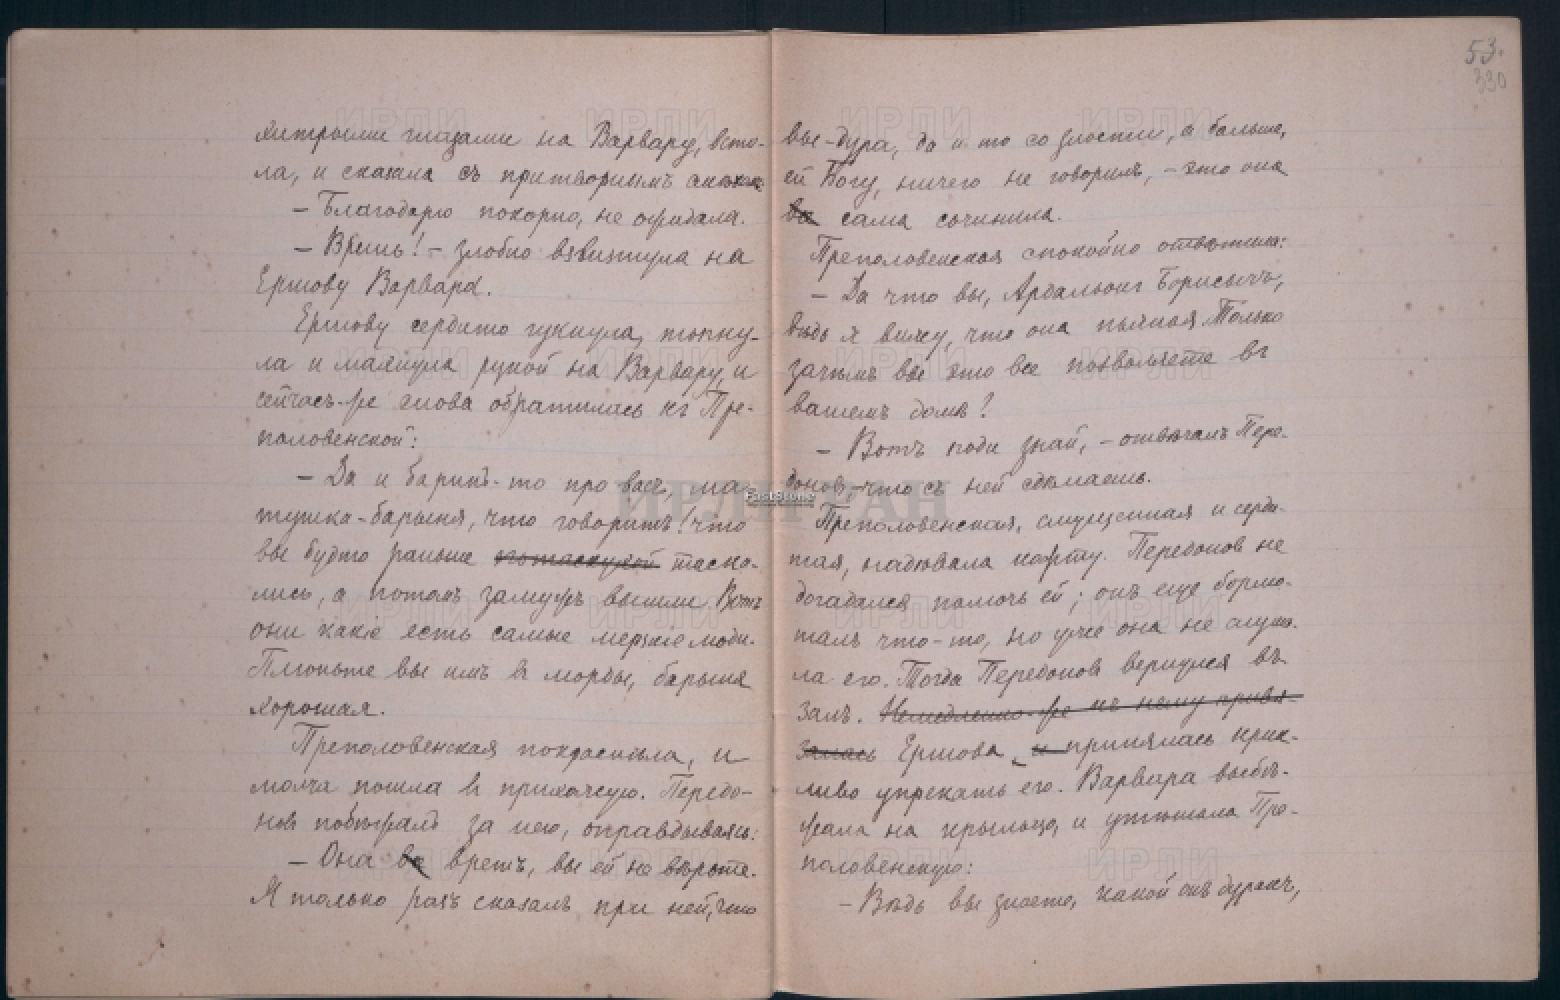 хитрыми глазами на Варвару, вста-
ла, и сказала съ притворнымъ
— Благодарю покорно, не ожидала.
— Врешь! — злобно взвизгнула на
Ершову Варвара.
Ершову сердито гукнула, топну-
ла и махнула рукой на Варвару, и
сейчасъ-же снова обратилась къ Пре-
половенской:
— Да и баринъ-то про васъ, ма-
тушка-барыня, что говоритъ! что
вы будто раньше потаскухой таска-
лись, а потомъ замужъ вышли. Вотъ
они какіе есть самые мерзкіе люди.
Плюньте вы имъ въ морды, барыня
хорошая.
Преполовенская покраснѣла, и
молча пошла въ прихожую. Передо-
новъ побѣжалъ за нею, оправдываясь:
— Она вретъ, вы ей не вѣрьте.
Я только разъ сказалъ при ней, что
53.
330
вы-дура, да и то со злости, а больше,
ей Богу, ничего не говорилъ, — это она
сама сочинила.
Преполовенская спокойно отвѣтила:
— Да что вы, Ардальонъ Борисычъ,
вѣдь я вижу, что она пьяная. Только
зачѣмъ вы это все позволяете въ
вашемъ домѣ?
— Вотъ поди знай, — отвѣчалъ Пере-
доновъ, — что съ ней сдѣлаешь.
Преполовенская, смущенная и серди-
тая, надѣвала кофту. Передоновъ не
догадался помочь ей; онъ еще бормо-
талъ что-то, но уже она не слуша-
ла его. Тогда Передоновъ вернулся въ
залъ. Немедленно-же къ нему привя-
залась Ершова и принялась крик-
ливо упрекать его. Варвара выбѣ-
жала на крыльцо, и утѣшала Пре-
половенскую:
— Вѣдь вы знаете, какой онъ дуракъ,
ИРЛИ РАН
FastStone